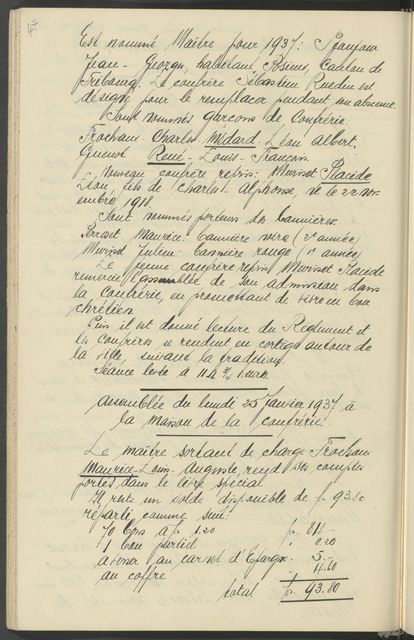 Est nommé Maître pour 1937: Beaujeux
Jean-Georges, habitant Posieux, Canton de
Fribourg. Le confrère Sébastien Ruedin est
désigné pour le remplacer pendant son absence.
Sont nommés garçons de Confrérie:
Frochaux Charles Médard-Léon Albert,
Gueniot René-Louis-François.
Nouveau confrère repris: Muriset Placide
Léon, fils de Charles Alphonse, né le 22 nov-
embre 1918.
Sont nommés porteurs des bannières:
Perroset Maurice: bannière noire (2e année)
Murisel Julien: bannière rouge (1e année)
Le jeune confrère repris Muriset Placide
remercie l'assemblée de son admission dans
la Confrérie, en promettant de vivre en bon
chrétien.
Puis il est donné lecture du Règlement et
les Confrères se rendent en cortège autour de
la ville, suivant la tradition.
Séance levée à 11 h 3/4 heures.
Assemblée du lundi 25 janvier 1937 à
la maison de la confrérie.
Le maître sortant de charge Frochaux
Maurice-Louis-Auguste, rend ses comptes
portés dans le livre spécial.
Il reste un solde disponible de fr. 93.80
réparti comme suit:
70 bons à fr. 1.20 fr. 84.-
1 bon partiel " 0 20
à verser au carnet d'Epargne " 5.-
au coffre " 4.60
total fr. 93.80